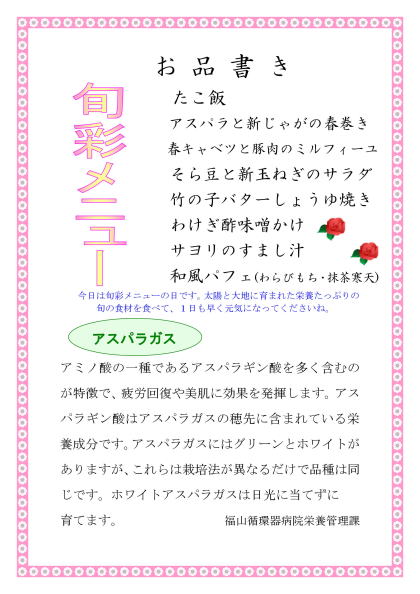 お品書き
旬彩メニュー
たこ飯
アスパラと新じゃがの春巻き
春キャベツと豚肉のミルフィーユ
そら豆と新玉ねぎのサラダ
竹の子バターしょうゆ焼き
わけぎ酢味噌かけ
サヨリのすまし汁
和風パフェ(わらびもち・抹茶寒天)
今日は旬彩メニューの日です。太陽と大地に育まれた栄養たっぷりの
旬の食材を食べて、１日も早く元気になってくださいね。
アスパラガス
アミノ酸の一種であるアスパラギン酸を多く含むの
が特徴で、疲労回復や美肌に効果を発揮します。アス
パラギン酸はアスパラガスの穂先に含まれている栄
養成分です。アスパラガスにはグリーンとホワイトが
ありますが、これらは栽培法が異なるだけで品種は同
じです。ホワイトアスパラガスは日光に当てずに
育てます。 福山循環器病院栄養管理課